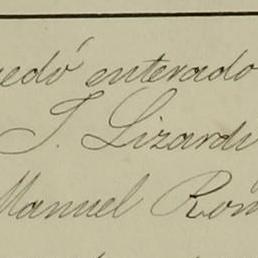 quedó enterado
T. Lizardi
Manuel Rom